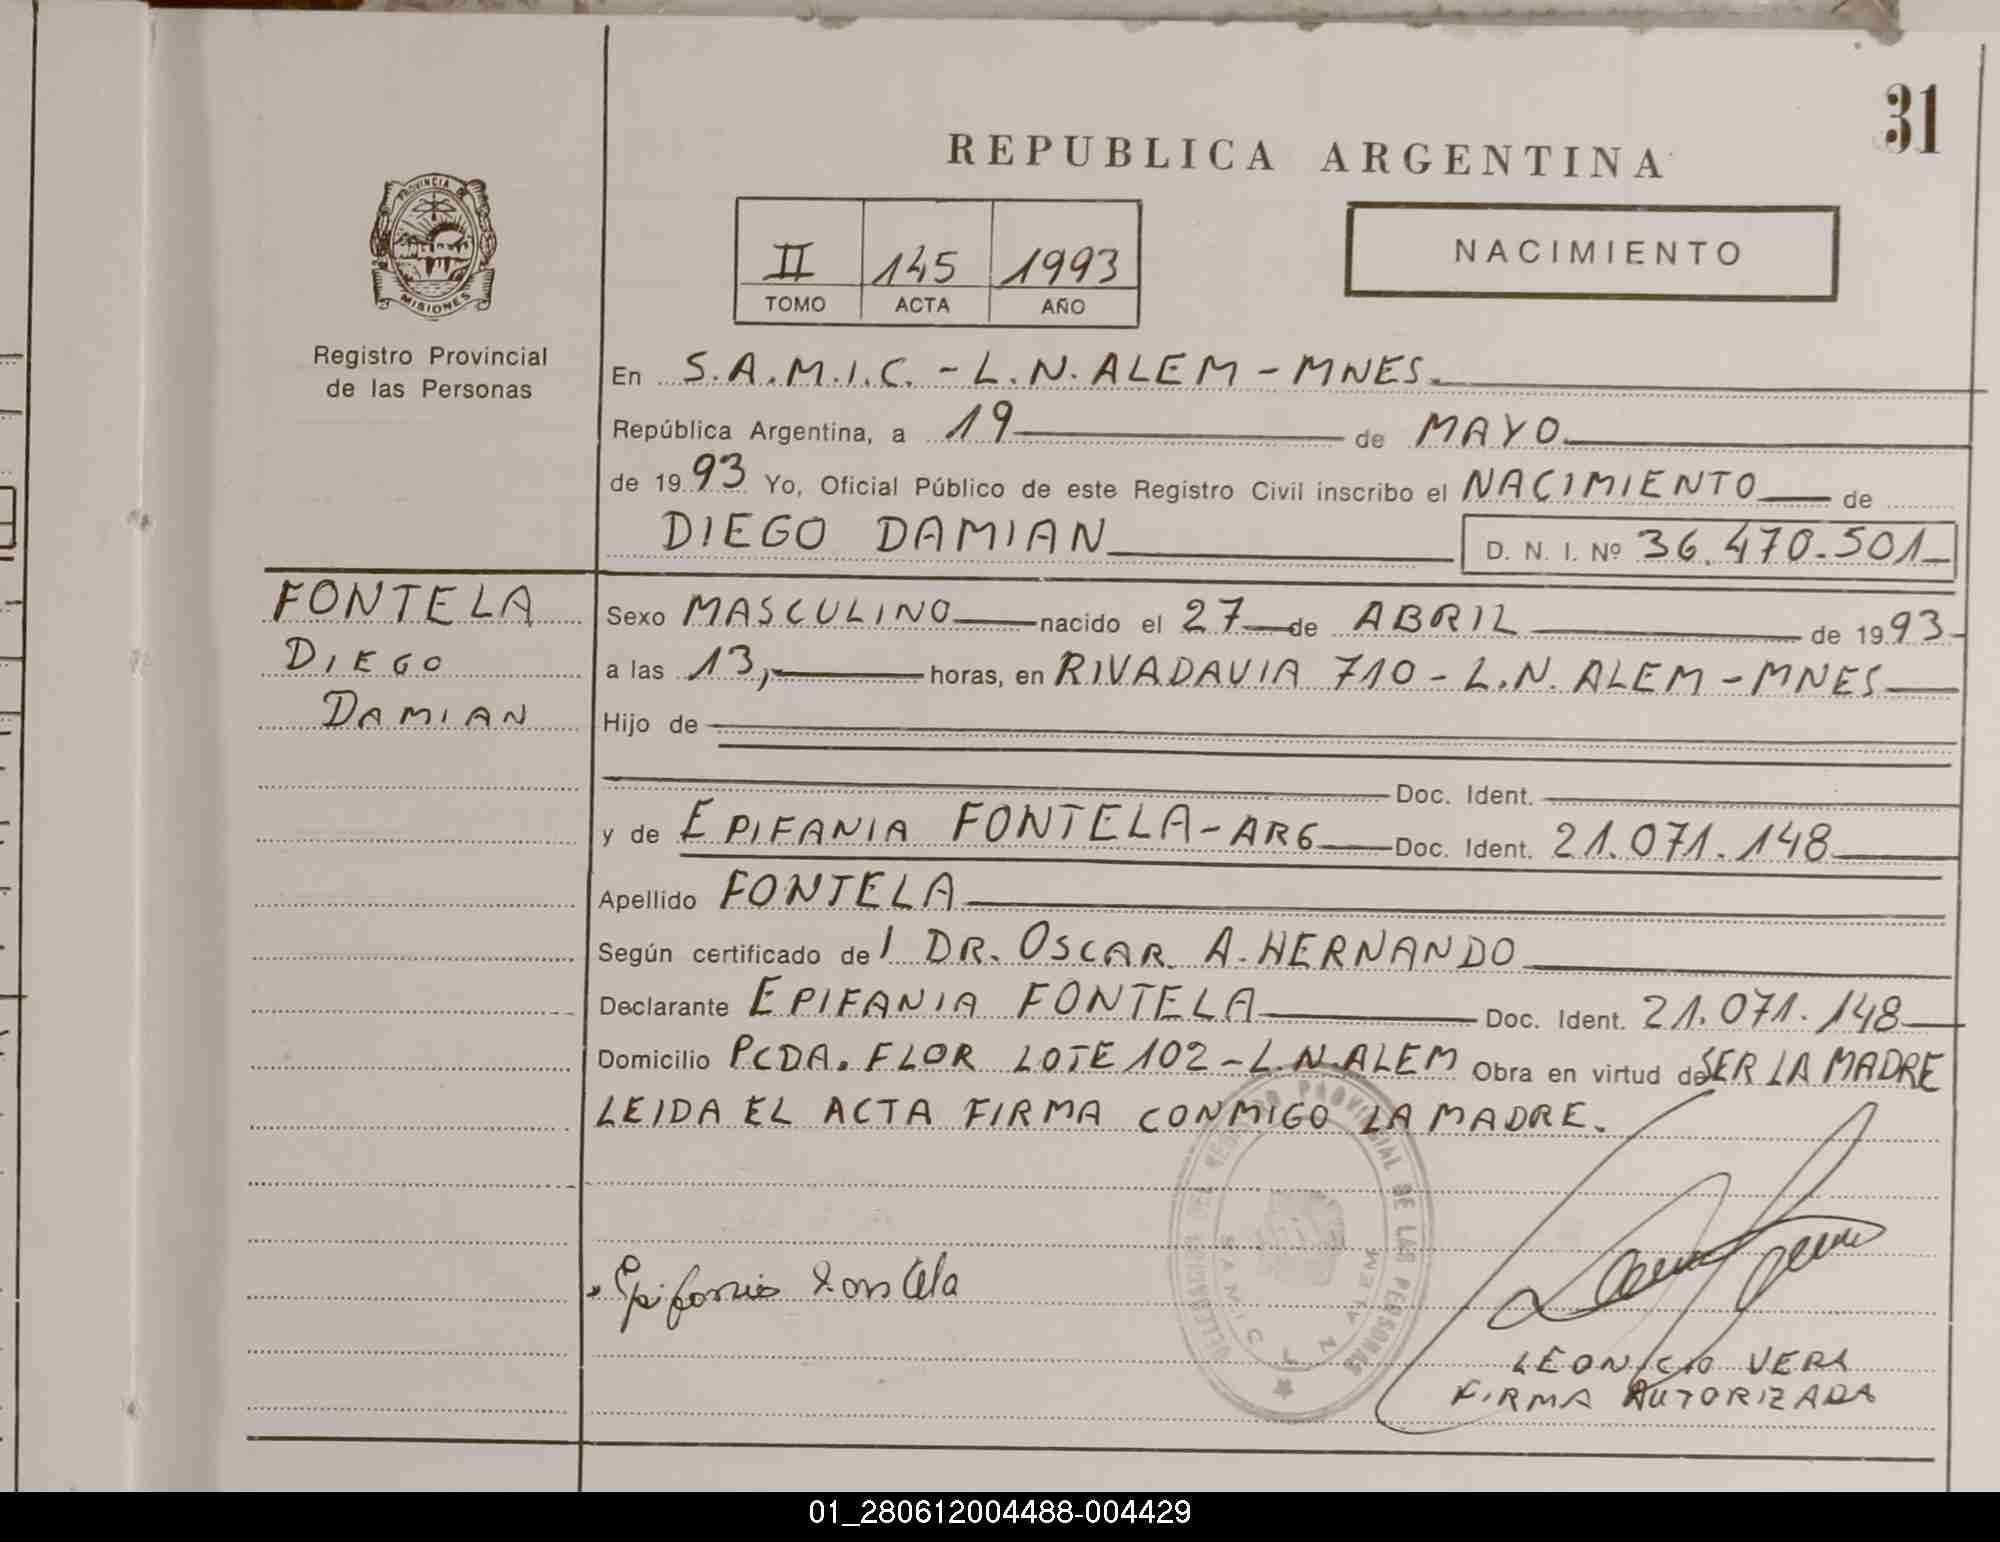 31
REPUBLICA ARGENTINA
PROVINCIA DE
MISIONES
Registro Provincial
de las Personas
II 145 1993
TOMO ACTA AÑO
NACIMIENTO
En S.A.M.I.C. - L.N. ALEM - MNES.
República Argentina, a 19 de MAYO
de 1993 Yo, Oficial Público de este Registro Civil inscribo el NACIMIENTO de
DIEGO DAMIAN D. N. I. Nº 36.470.501
FONTELA
DIEGO
DAMIAN
Sexo MASCULINO nacido el 27 de ABRIL de 1993
a las 13, horas, en RIVADAVIA 710 - L.N. ALEM - MNES
Hijo de
Doc. Ident.
y de EPIFANIA FONTELA - ARG Doc. Ident. 21.071.148
Apellido FONTELA
Según certificado de l DR. OSCAR A. HERNANDO
Declarante EPIFANIA FONTELA Doc. Ident. 21.071.148
Domicilio PCDA. FLOR LOTE 102 - L.N. ALEM Obra en virtud de SER LA MADRE
LEIDA EL ACTA FIRMA CONMIGO LA MADRE.
DELEGACION DEL REGISTRO PROVINCIAL DE LAS PERSONAS
SAMIC L N ALEM
Epifania Fontela
LEONICIO VERA
FIRMA AUTORIZADA
01_280612004488-004429